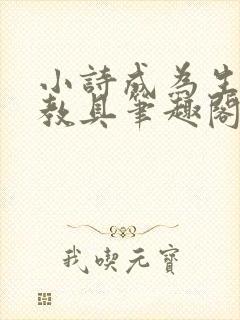 小詩成為生
教具筆趣閣
我喫元寶